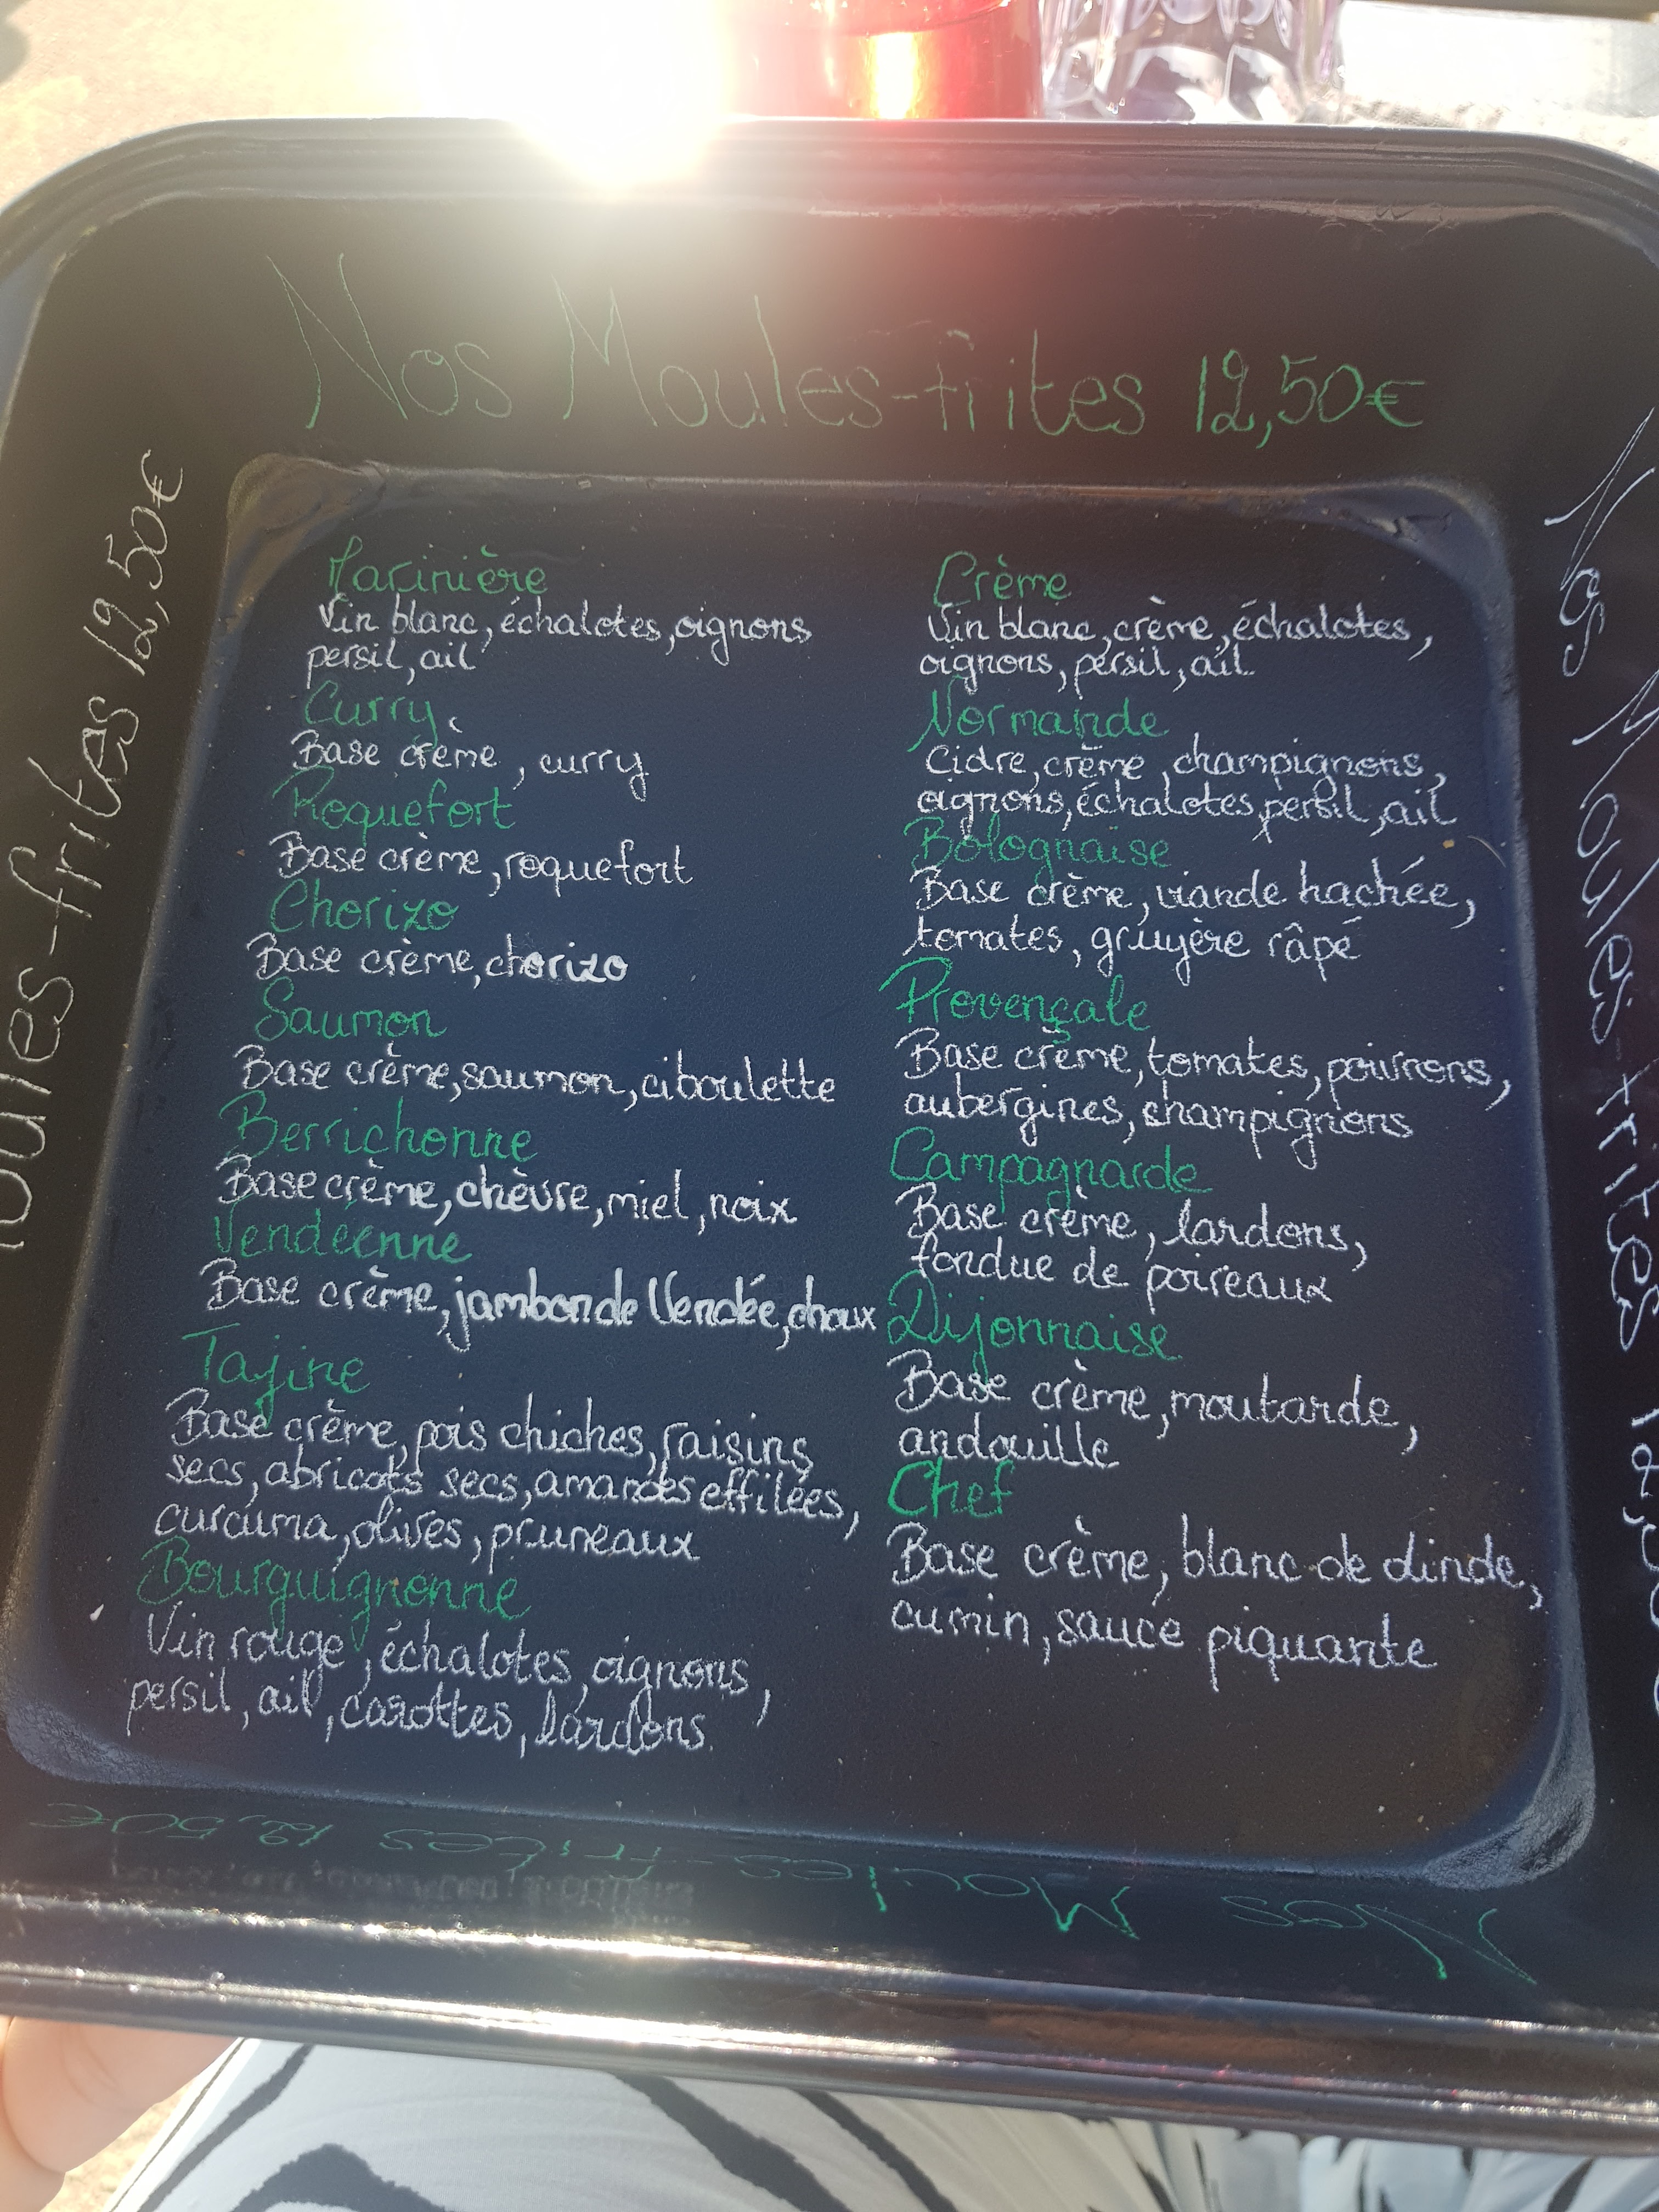 Nos Moules-frites 12,50€
Marinière
Vin blanc, échalotes, oignons
persil, ail
Curry
Base crème, curry
Roquefort
Base crème, roquefort
Chorizo
Base crème, chorizo
Saumon
Base crème, saumon, ciboulette
Berrichonne
Base crème, chèvre, miel, noix
Vendéenne
Base crème, jambon de Vendée, choux
Tajine
Base crème, pois chiches, raisins
secs, abricots secs, amandes effilées,
curcuma, olives, pruneaux
Bourguignonne
Vin rouge, échalotes, oignons,
persil, ail, carottes, lardons
Crème
Vin blanc, crème, échalotes,
oignons, persil, ail
Normande
Cidre, crème, champignons,
oignons, échalotes, persil, ail
Bolognaise
Base crème, viande hachée,
tomates, gruyère râpé
Provençale
Base crème, tomates, poivrons,
aubergines, champignons
Campagnarde
Base crème, lardons,
fondue de poireaux
Dijonnaise
Base crème, moutarde,
andouille
Chef
Base crème, blanc de dinde,
cumin, sauce piquante
oules-frites 12,50€
Nos Moules-frites 12,50
Nos Moules-frites 12,50€